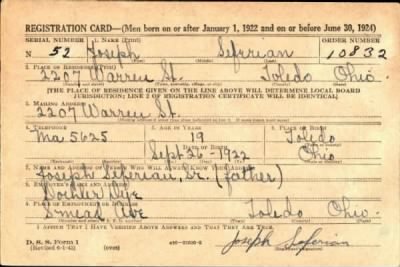 REGISTRATION CARD—(Men born on or after January 1, 1922 and on or before June 30, 1924)
SERIAL NUMBER 1. NAME (Print) ORDER NUMBER
N 52 Joseph Seferian 10832
2. PLACE OF RESIDENCE (Print)
2207 Warren St. Toledo Ohio.
[THE PLACE OF RESIDENCE GIVEN ON THE LINE ABOVE WILL DETERMINE LOCAL BOARD
JURISDICTION; LINE 2 OF REGISTRATION CERTIFICATE WILL BE IDENTICAL]
3. MAILING ADDRESS
2207 Warren St.
4. TELEPHONE 5. AGE IN YEARS 6. PLACE OF BIRTH
Ma 5625 19 Toledo
DATE OF BIRTH
Sept 26 - 1922 Ohio
7. NAME AND ADDRESS OF PERSON WHO WILL ALWAYS KNOW YOUR ADDRESS
Joseph Seferian, Sr. (father)
8. EMPLOYER'S NAME AND ADDRESS
Doehler Dye
Smead Ave Toledo Ohio.
I AFFIRM THAT I HAVE VERIFIED ABOVE ANSWERS AND THAT THEY ARE TRUE.
D. S. S. Form 1
(Revised 6-1-42) (over) Joseph Seferian